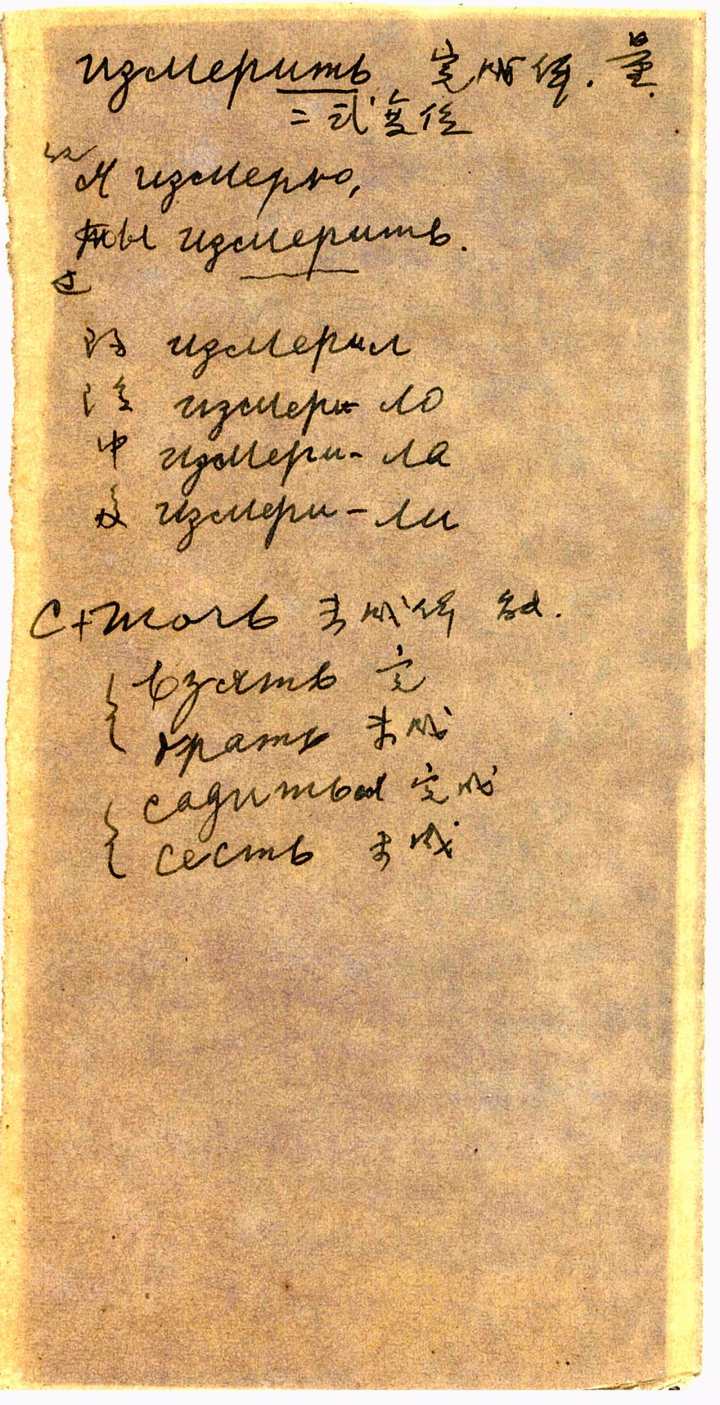 измерить 完成体. 量.
二式变位
Я измерю,
ты измерить.
измерил
измери-ло
中 измери-ла
измери-ли
С+мочь 未成体
взять 完
брать 未成
садиться 完成
сесть 未成